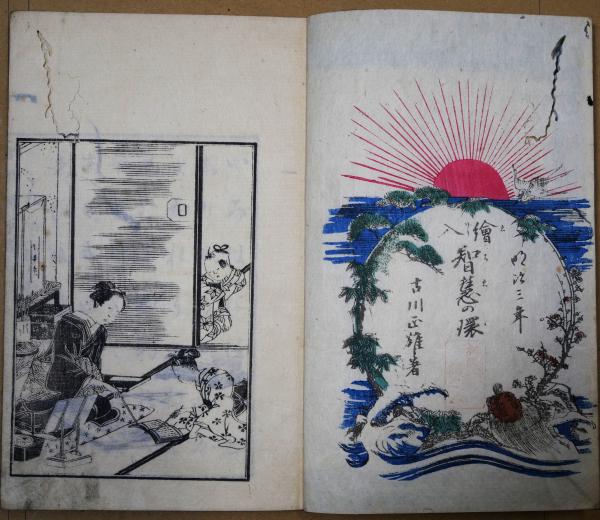 明治三年
繪入
智慧の環
古川正雄著